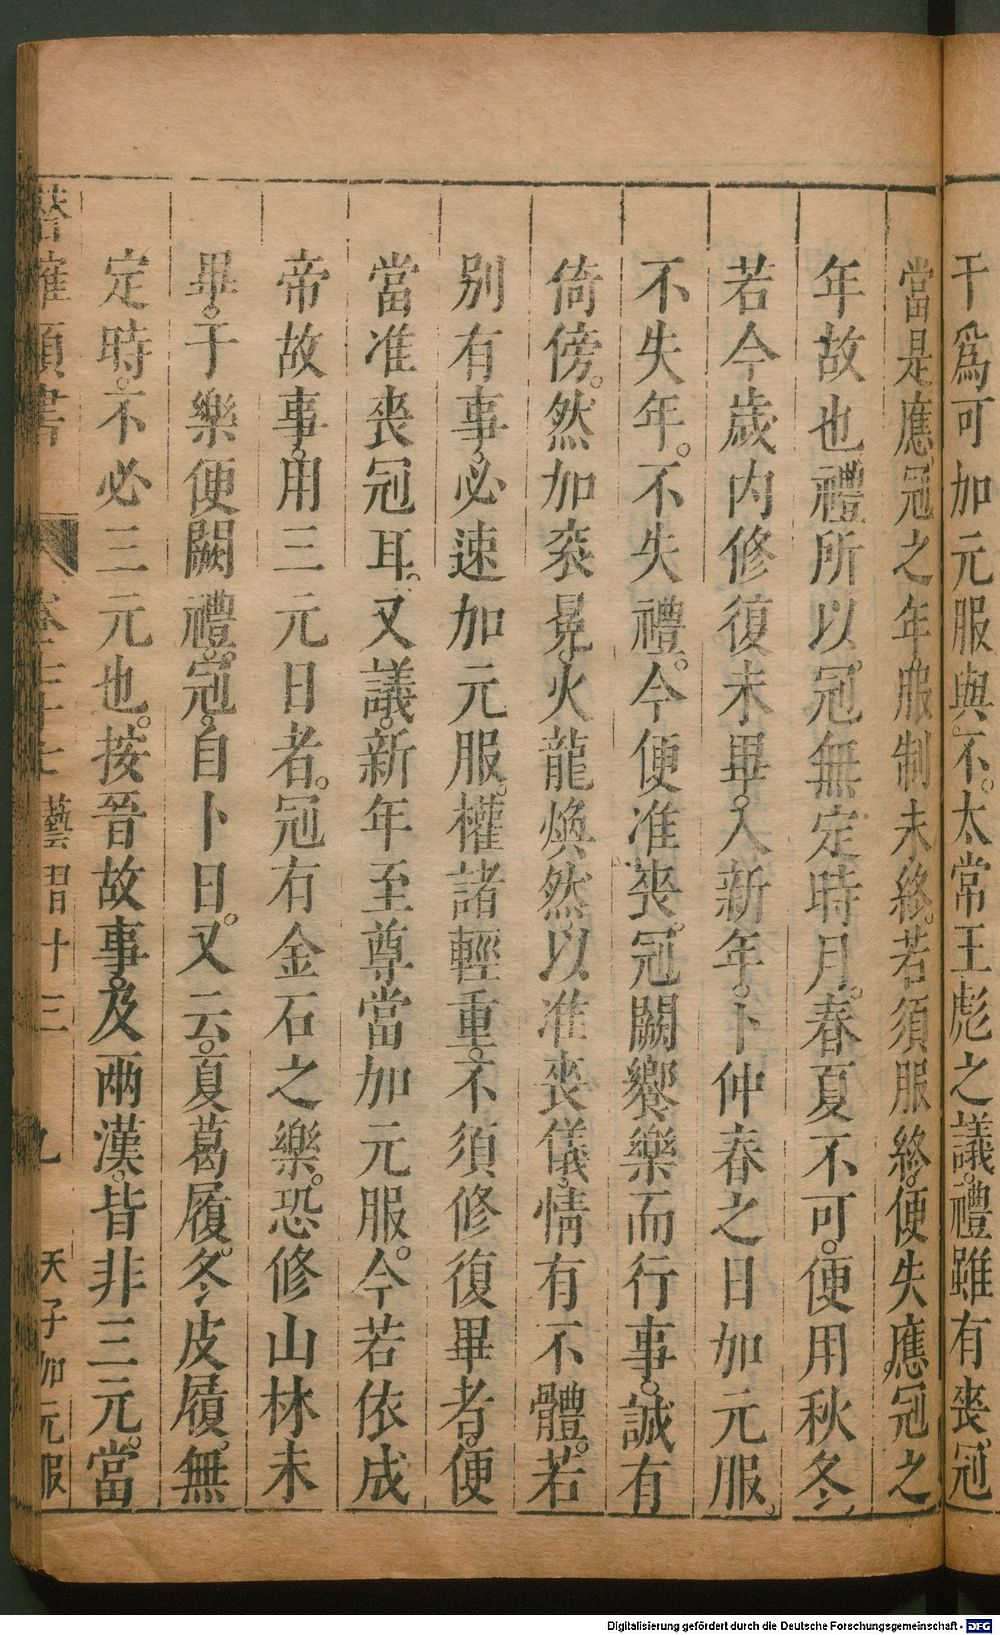 干爲可加元服與不。太常王彪之議。禮雖有喪冠
當是應冠之年。服制未終。若須服終。便失應冠之
年故也。禮所以冠無定時月。春夏不可。便用秋冬。
若今歲内修復未畢。入新年。卜仲春之日加元服。
不失年。不失禮。今便准喪。冠闕饗樂而行事。誠有
倚傍。然加衮冕。火龍煥然。以准喪儀。情有不體。若
別有事。必速加元服。權諸輕重。不須修復畢者。便
當准喪冠耳。又議。新年至尊當加元服。今若依成
帝故事。用三元日者。冠有金石之樂。恐修山林未
畢。于樂便闕禮。冠。自卜日。又云。夏葛履。冬皮履。無
定時。不必三元也。按晉故事。及兩漢。皆非三元。當
類書 卷 藝習十三 九 天子加元服
Digitalisierung gefördert durch die Deutsche Forschungsgemeinschaft - DFG